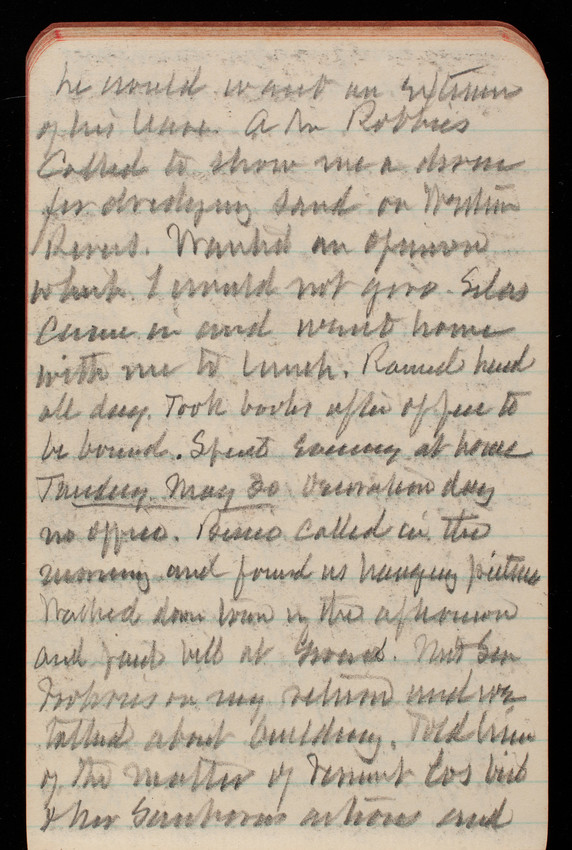 he would want an extension
of his leave. A Mr Robbins
Called to show me a drove
for dredging sand on Western
Rivers. Wanted an opinion
which I would not give. Silas
Came in and went home
with me to lunch. Rained hard
all day. Took books after office to
be bound. Spent Evening at home
Thursday May 30 Decoration day
no office. Called in the
morning and found us hanging pictures
Walked down town in the afternoon
and paid bill at. Met Gen
on my return and we
talked about building. Told him
of the matter of Vermont Cos bid
& her actions and